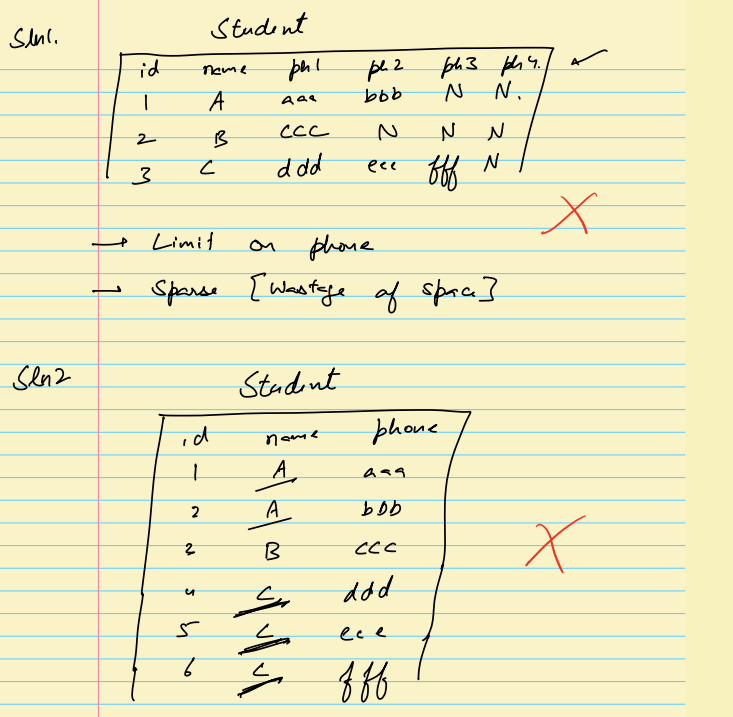 Sln1.
Student
id name ph1 ph2 ph3 ph4.
1 A aaa bbb N N.
2 B ccc N N N
3 C ddd eee fff N
→ Limit on phone
→ Sparse [Wastage of space]
Sln2
Student
id name phone
1 A aaa
2 A bbb
3 B ccc
4 C ddd
5 C eee
6 C fff